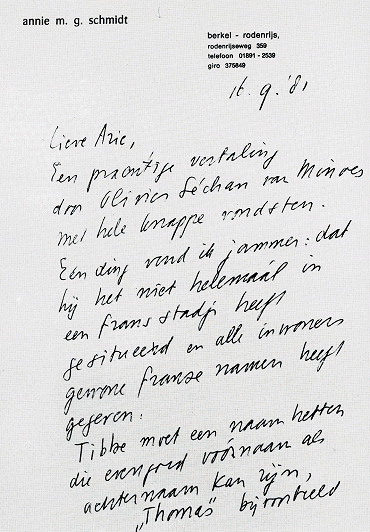 annie m. g. schmidt
berkel - rodenrijs,
rodenrijseweg 359
telefoon 01891 - 2539
giro 375849
16.9.'81
Lieve Arie,
Een prachtige vertaling
door Olivier Séchan van Minoes
met hele knappe vondsten.
Eén ding vond ik jammer: dat
hij het niet helemaál in
een frans stadje heeft
gesitueerd en alle inwoners
gewone franse namen heeft
gegeven.
Tibbe moet een naam hebben
die evengoed vóórnaam als
achternaam kan zijn,
„Thomas" bijvoorbeeld